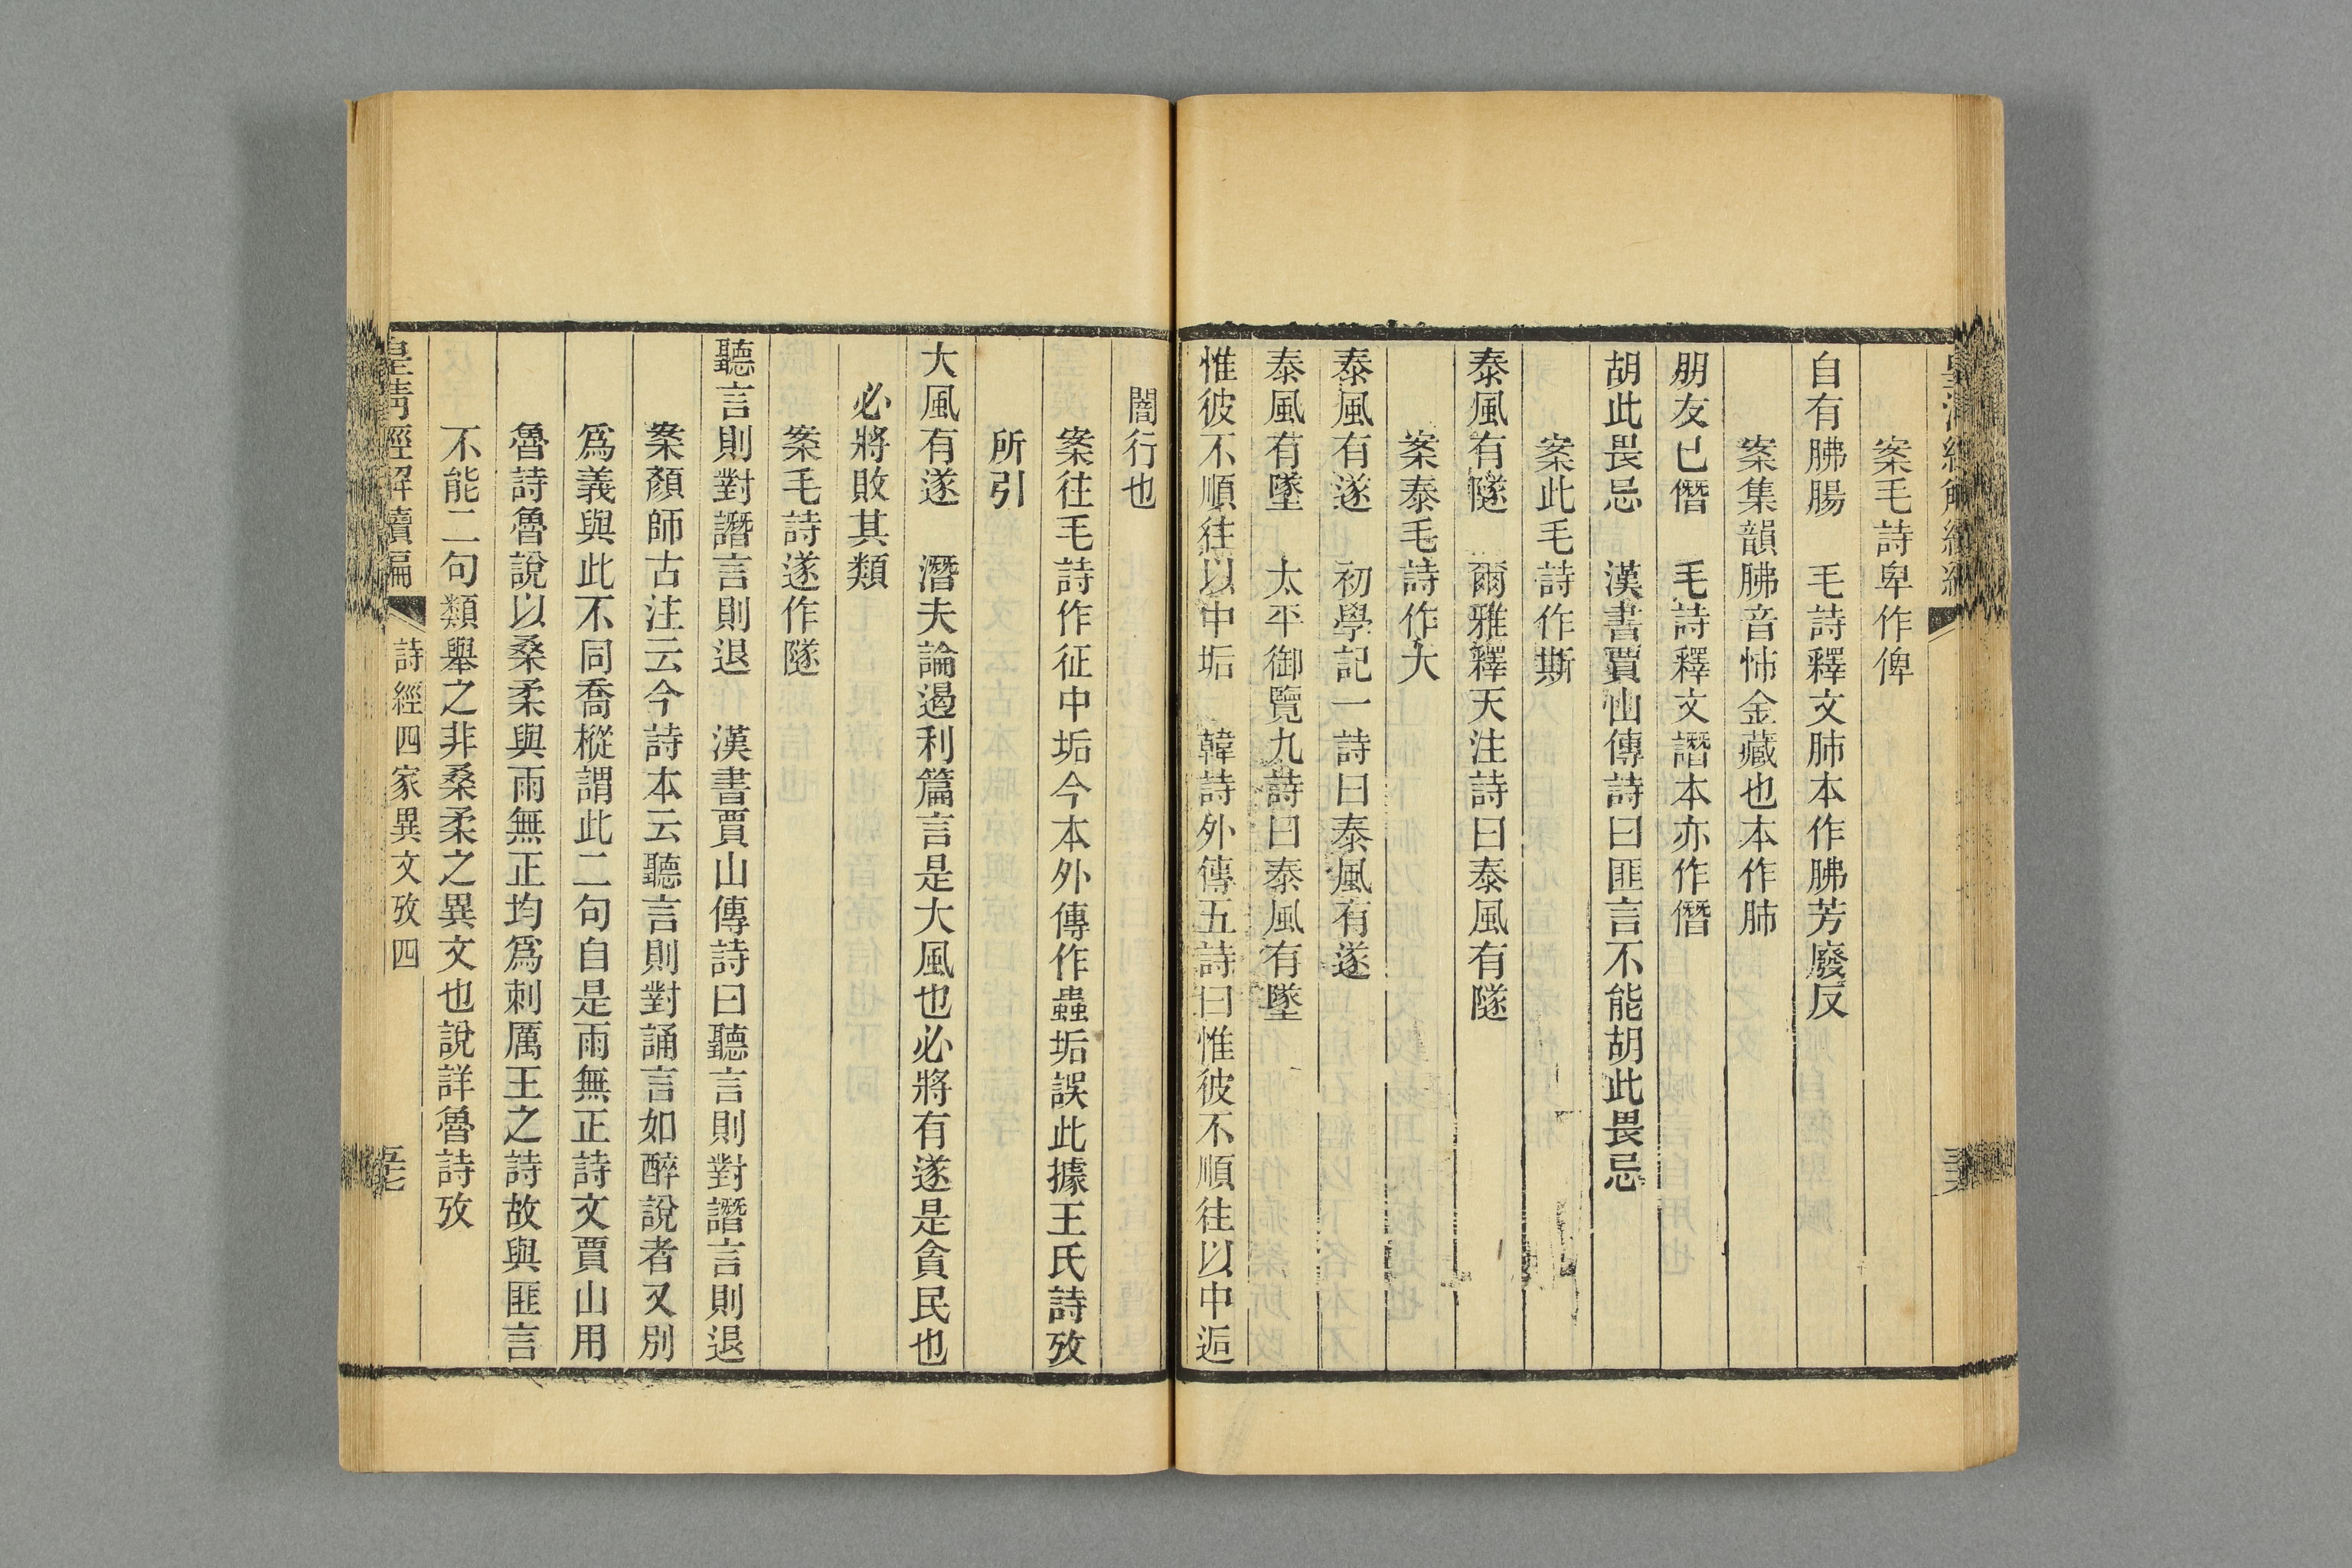 案毛詩卑作俾
自有胇腸　毛詩釋文肺本作胇芳廢反
案集韻胇音怖金藏也本作肺
朋友已僭　毛詩釋文譖本亦作僭
胡此畏忌　漢書賈山傳詩曰匪言不能胡此畏忌
案此毛詩作斯
泰風有隧　爾雅釋天注詩曰泰風有隧
案泰毛詩作大
泰風有遂　初學記一詩曰泰風有遂
泰風有墜　太平御覽九詩曰泰風有墜
惟彼不順往以中垢　韓詩外傳五詩曰惟彼不順往以中逅
闇行也
案往毛詩作征中垢今本外傳作蟲垢誤此據王氏詩攷
所引
大風有遂　潛夫論遏利篇言是大風也必將有遂是貪民也
必將敗其類
案毛詩遂作隧
聽言則對譖言則退　漢書賈山傳詩曰聽言則對譖言則退
案顏師古注云今詩本云聽言則對誦言如醉說者又別
爲義與此不同喬樅謂此二句自是雨無正詩文賈山用
魯詩魯說以桑柔與雨無正均爲刺厲王之詩故與匪言
不能二句類舉之非桑柔之異文也說詳魯詩攷
皇清經解續編　詩經四家異文攷四